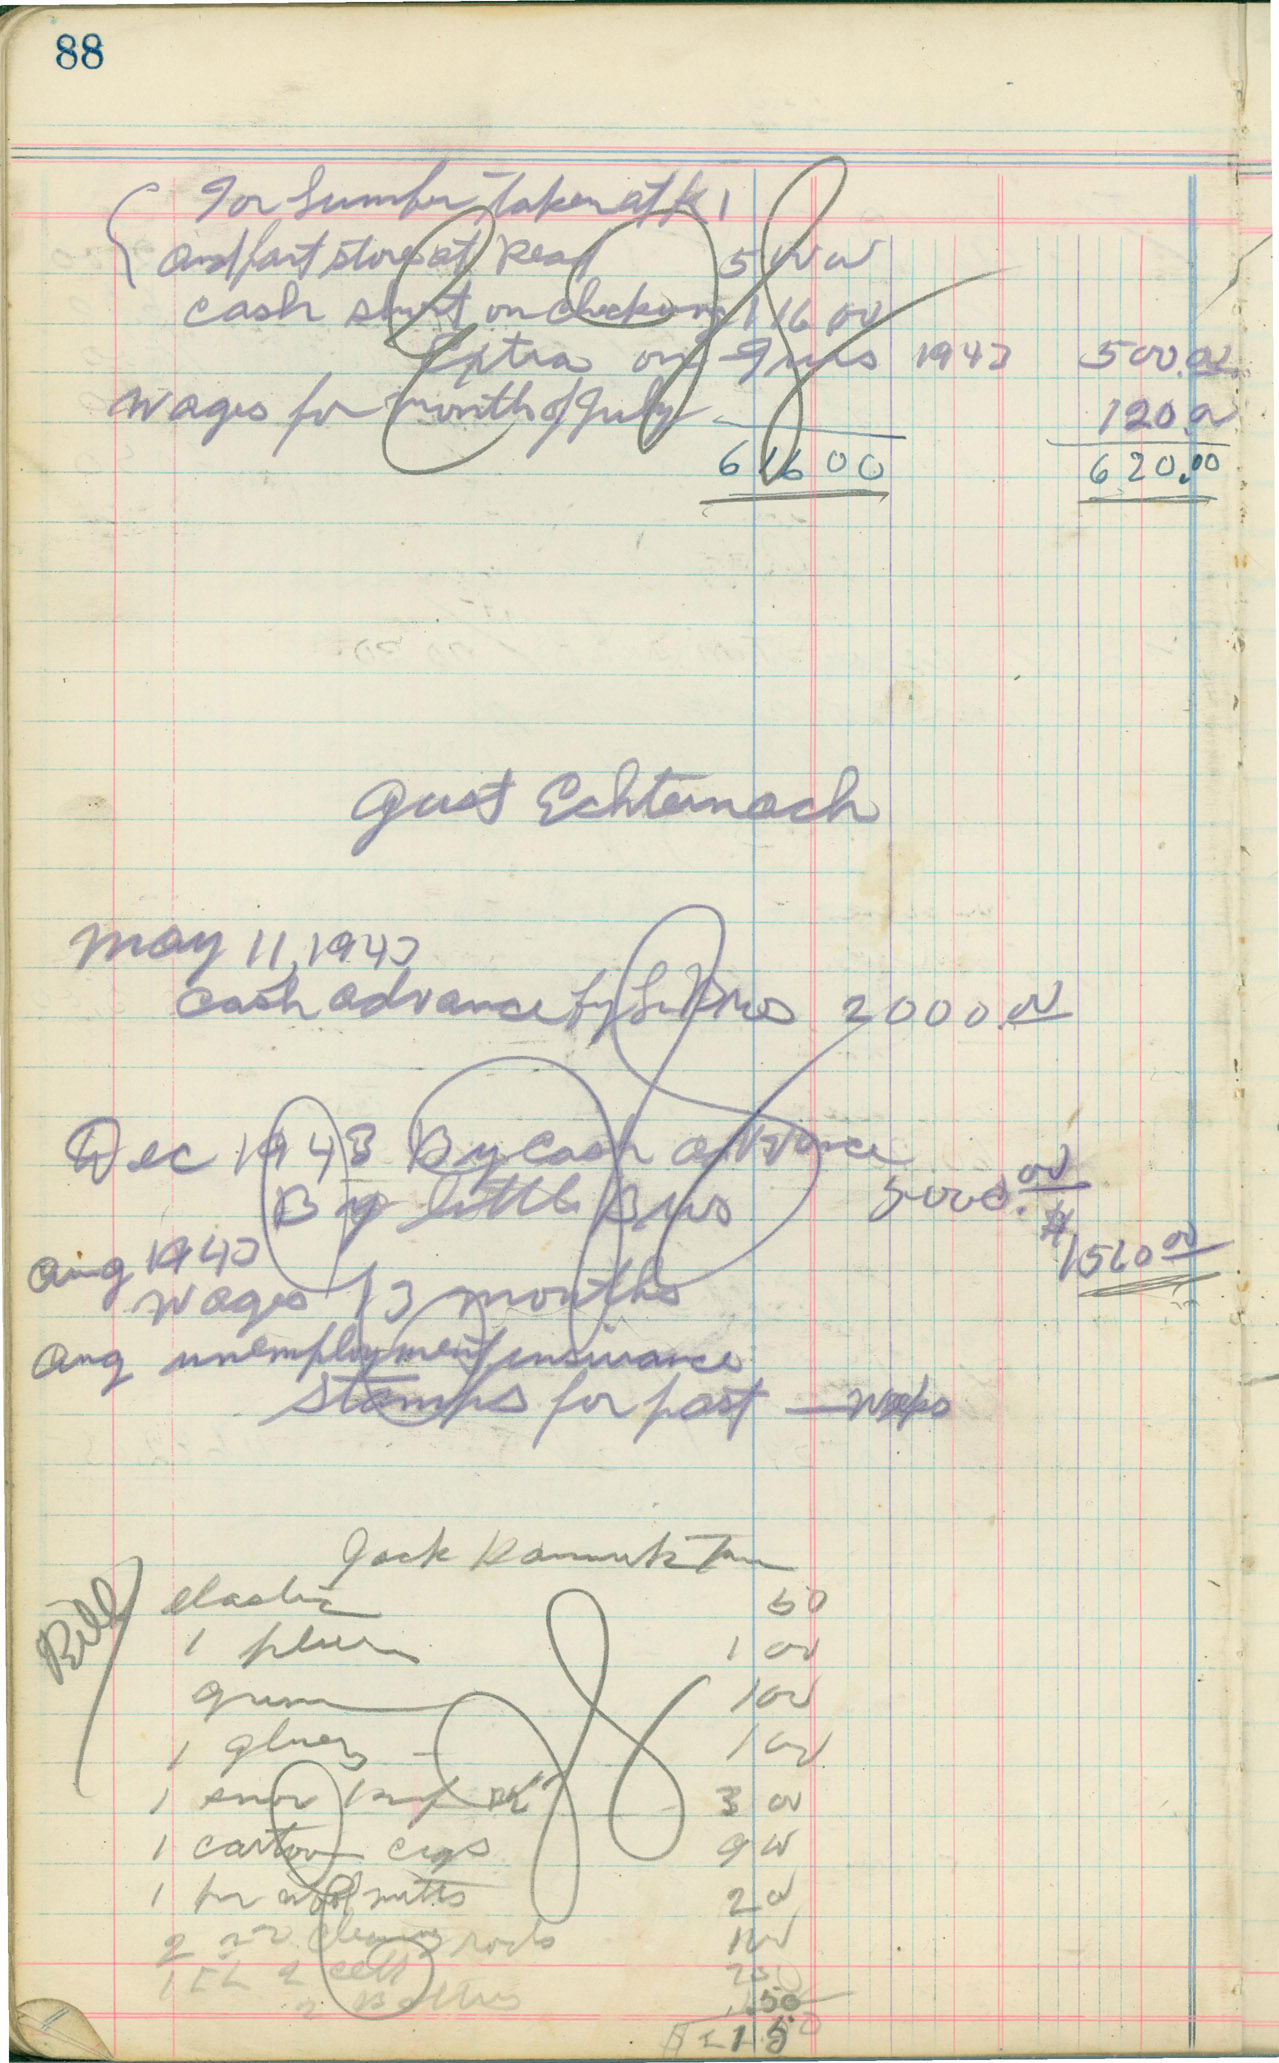 88
For Lumber taken at K1
and part stores at Read 500 00
Cash short on checking 116 00
Extra on Furs 1943 500.00
Wages for month of July 120.00
616 00 620.00
Gust Echternach
May 11, 1943
Cash advance by L. Bros 2000.00
Dec 1943 By Cash advance
By little Bros 5000.00
Aug 1943 $1560 00
Wages 13 months
Aug unemployment insurance
Stamps for past — weeks
Jack
Bill
elastic 50
1 1 00
gum 1 00
1 1 00
1 snow 3 00
1 carton cigs 9 00
1 pr wool mitts 2 00
2 22 cleaning rods
1 2 cell
2